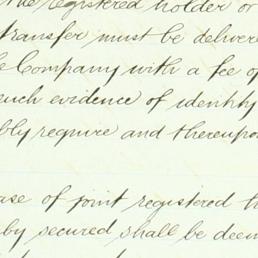 the registered holder or
transfer must be delivere
Company with a fee of
such evidence of identity
bly require and thereupon
ase of joint registered h
by secured shall be deem